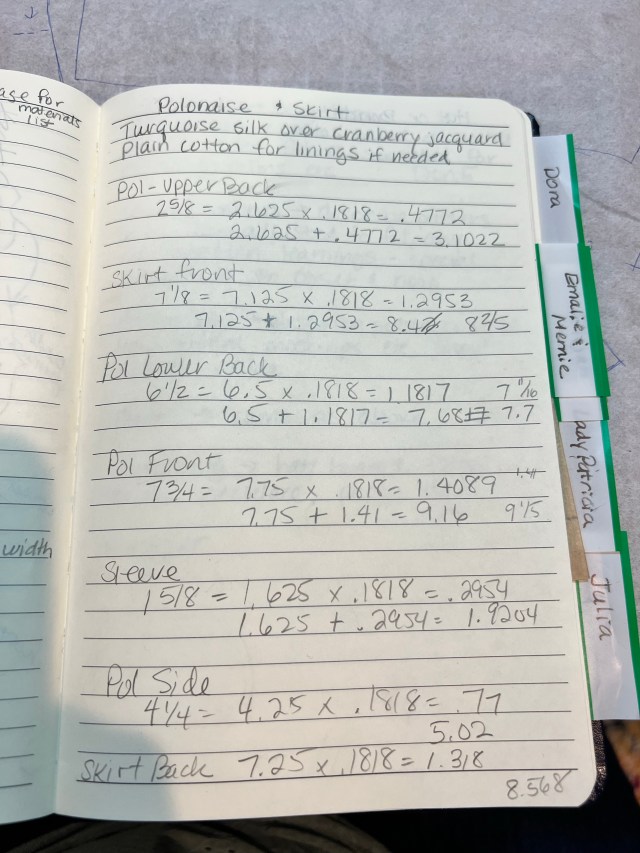 ase for
materials
list
width
Polonaise & Skirt
Turquoise silk over cranberry jacquard
Plain cotton for linings if needed
Pol-Upper Back
2 5/8 = 2.625 x .1818 = .4772
2.625 + .4772 = 3.1022
Skirt front
7 1/8 = 7.125 x .1818 = 1.2953
7.125 + 1.2953 = 8.42 8 2/5
Pol Lower Back
6 1/2 = 6.5 x .1818 = 1.1817 7 11/16
6.5 + 1.1817 = 7.6817 7.7
Pol Front
7 3/4 = 7.75 x .1818 = 1.4089 1.41
7.75 + 1.41 = 9.16 9 1/5
Sleeve
1 5/8 = 1.625 x .1818 = .2954
1.625 + .2954 = 1.9204
Pol Side
4 1/4 = 4.25 x .1818 = .77
5.02
Skirt Back 7.25 x .1818 = 1.318
8.568
Dora
Emalie &
Mernie
Lady Patricia
Julia